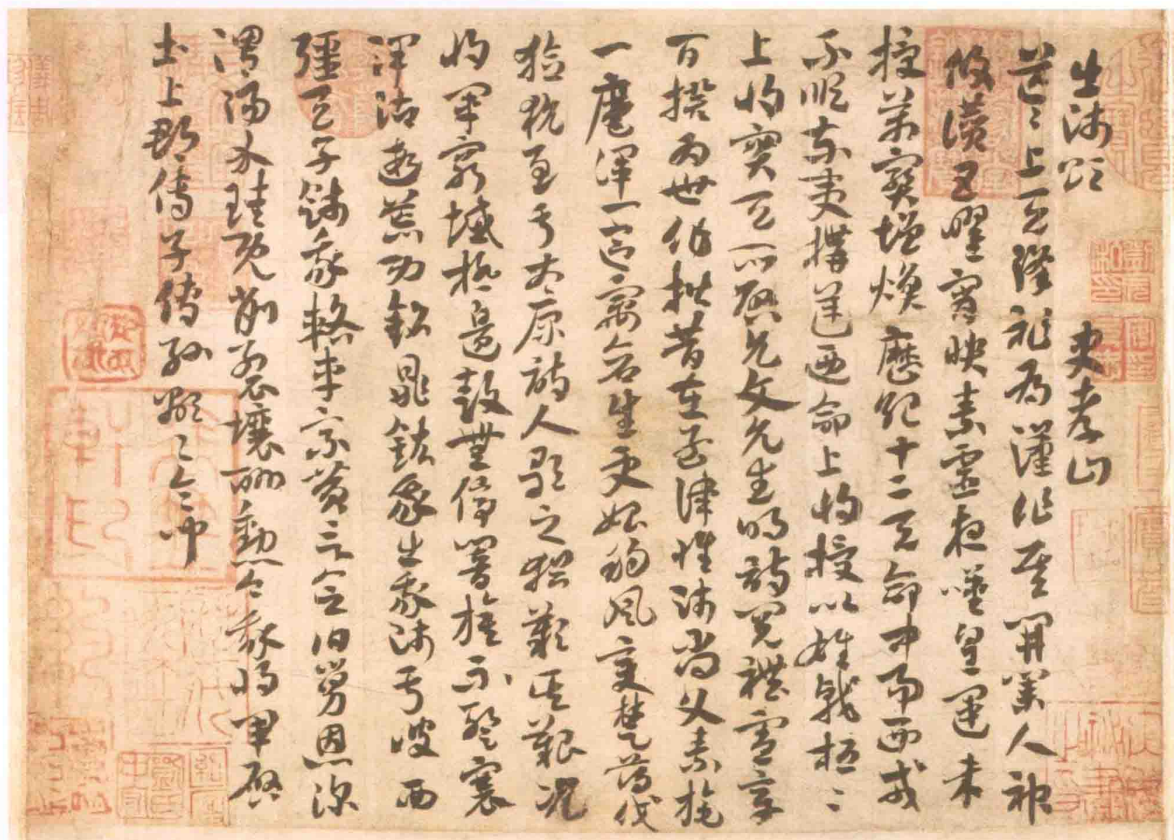 出師頌 史孝山
茫〻上天降祚為漢作基開業人神
攸讚五曜宵映素靈夜嘆皇運未
授萬寶增煥歷紀十二天命中易西戎
不順東夷構逆迺命上將授以雄戟桓〻
上將寔天所啟允文允武明詩閱禮憲章
百揆為世作楷昔在孟津惟師尚父素旄
一麾渾一區宇蒼生更始朔風變楚薄伐
獫狁至于太原詩人歌之猶歎其艱況
將軍窮域極邊鼓無停響旌不蹔褰
澤沾遐荒功銘鼎鉉我出我師于彼西
疆天子餞我輅車乘黃言念伯舅恩深
渭陽介珪既削裂壤酬勳今我將軍啟
土上郡傳子傳孫顯〻令問